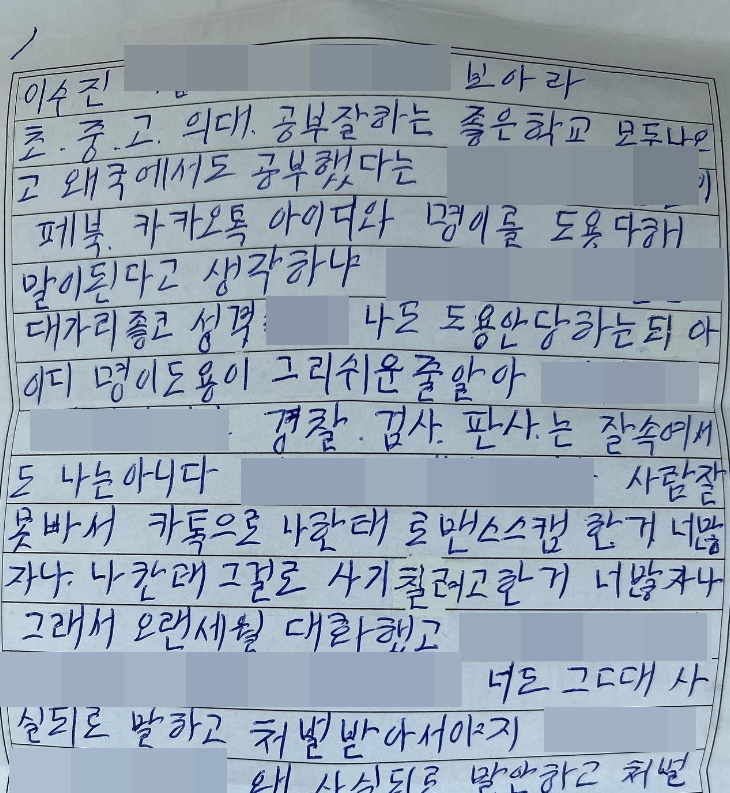 이수진 보아라
초.중.고. 의대. 공부잘하는 좋은학교 모두나오
고 왜국에서도 공부했다는
페북. 카카오톡 아이디와 명이를 도용당해
말이된다고 생각하냐
대가리좋고 성격 나도 도용안당하는되 아
이디 명이도용이 그리쉬운줄알아
경찰. 검사. 판사.는 잘속여서
도 나는아니다 사람잘
못빠서 카톡으로 나한태 로맨스스캠 한거 너맞
자나. 나한태 그걸로 사기칠려고한거 너맞자나
그래서 오랜세월 대화했고
너도 그대 사
실되로 말하고 처벌받아서야지
왜 사실되로 말안하고 처벌